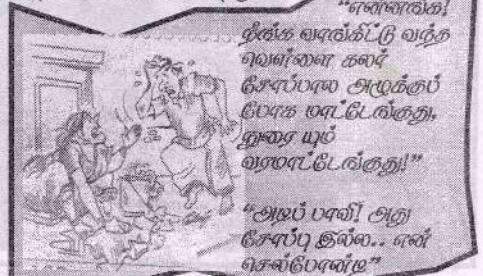 "என்னங்க!
நீங்க வாங்கிட்டு வந்த
வெள்ளை கலர்
சோப்பால அழுக்குப்
போக மாட்டேங்குது,
நுரை யும்
வரமாட்டேங்குது!"
"அடிப் பாவி! அது
சோப்பு இல்ல.. என்
செல்போன்டி"